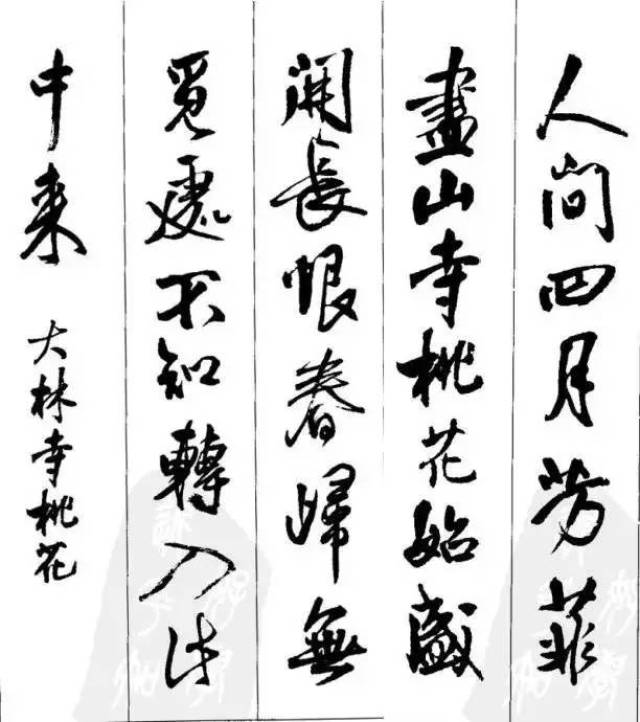 人间四月芳菲
盡山寺桃花始盛
開長恨春歸無
覓處不知轉入此
中来
大林寺桃花